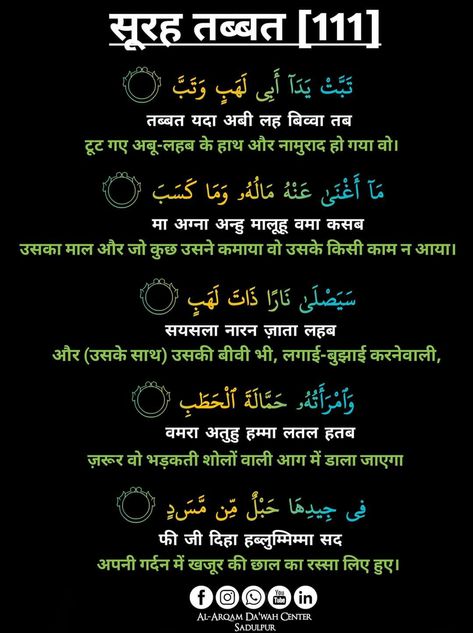 सूरह तब्बत [111]
تَبَّتْ يَدَآ أَبِى لَهَبٍ وَتَبَّ
तब्बत यदा अबी लह बिव्वा तब
टूट गए अबू-लहब के हाथ और नामुराद हो गया वो।
مَآ أَغْنَىٰ عَنْهُ مَالُهُۥ وَمَا كَسَبَ
मा अग्ना अन्हु मालूहू वमा कसब
उसका माल और जो कुछ उसने कमाया वो उसके किसी काम न आया।
سَيَصْلَىٰ نَارًا ذَاتَ لَهَبٍ
सयसला नारन ज़ाता लहब
और (उसके साथ) उसकी बीवी भी, लगाई-बुझाई करनेवाली,
وَٱمْرَأَتُهُۥ حَمَّالَةَ ٱلْحَطَبِ
वमरा अतुहु हम्मा लतल हतब
ज़रूर वो भड़कती शोलों वाली आग में डाला जाएगा
فِى جِيدِهَا حَبْلٌ مِّن مَّسَدٍ
फी जी दिहा हब्लुम्मिम्मा सद
अपनी गर्दन में खजूर की छाल का रस्सा लिए हुए।
You Tube
Al-Arqam Da'wah Center
Sadulpur